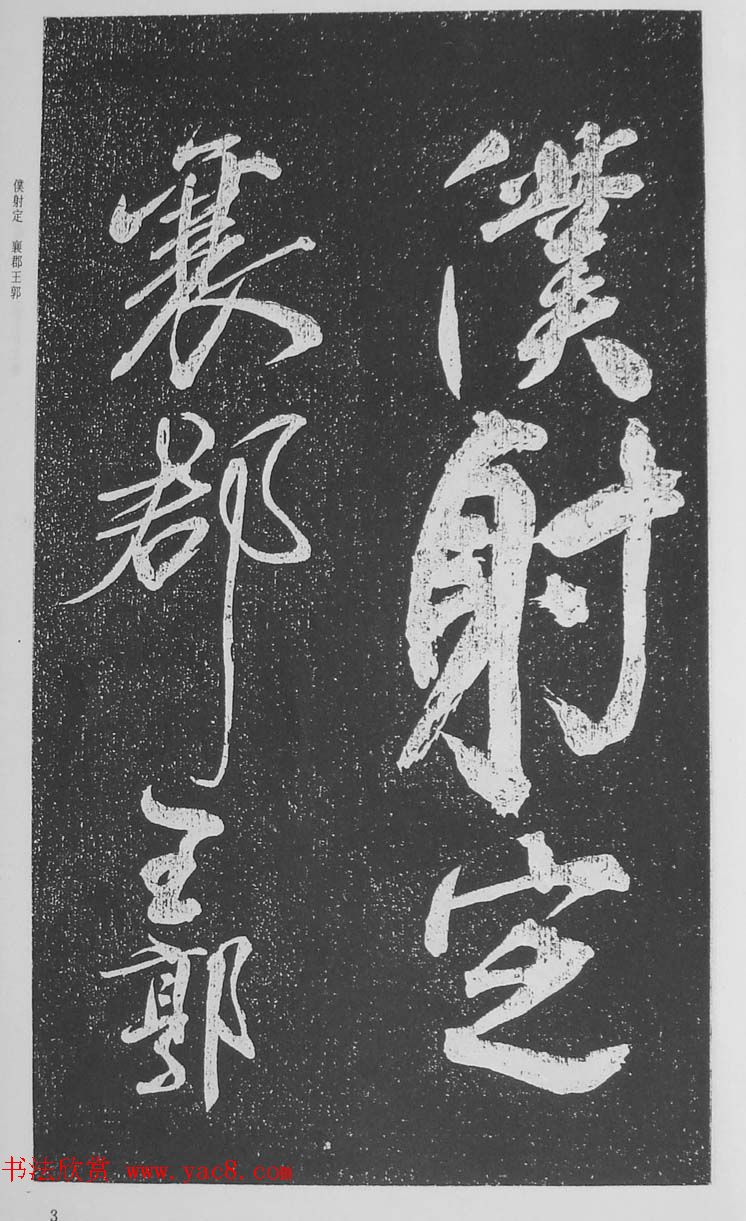 僕射定
襄郡王郭
僕射定 襄郡王郭
书法欣赏 www.yac8.com
3